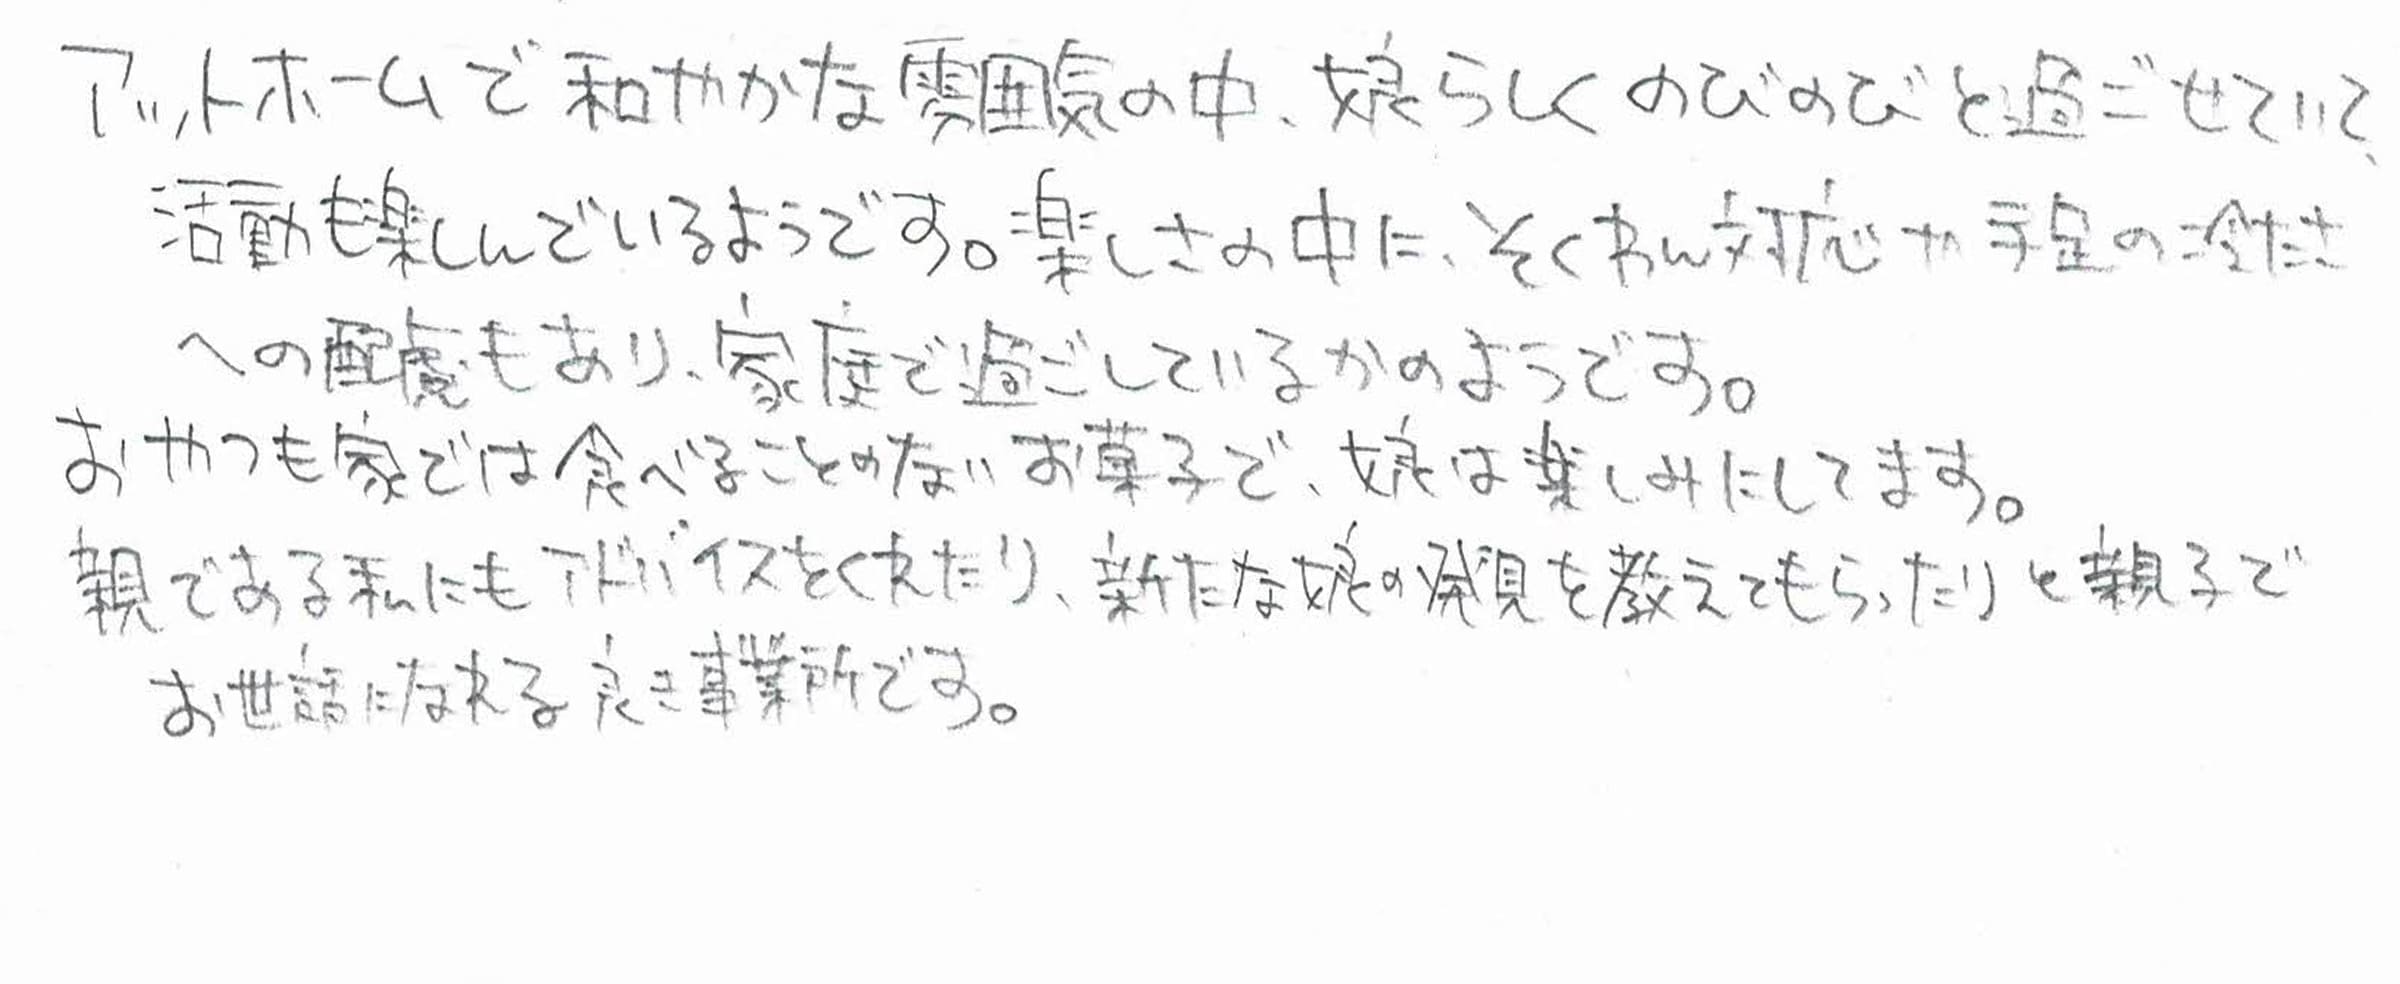 アットホームで和やかな雰囲気の中、娘らしくのびのびと過ごせていて、
活動も楽しんでいるようです。楽しさの中に、そくわん対応や手足の冷たさ
への配慮もあり、家庭で過ごしているかのようです。
おやつも家では食べることのないお菓子で、娘は楽しみにしてます。
親である私にもアドバイスをくれたり、新たな娘の発見を教えてもらったりと親子で
お世話になれる良き事業所です。